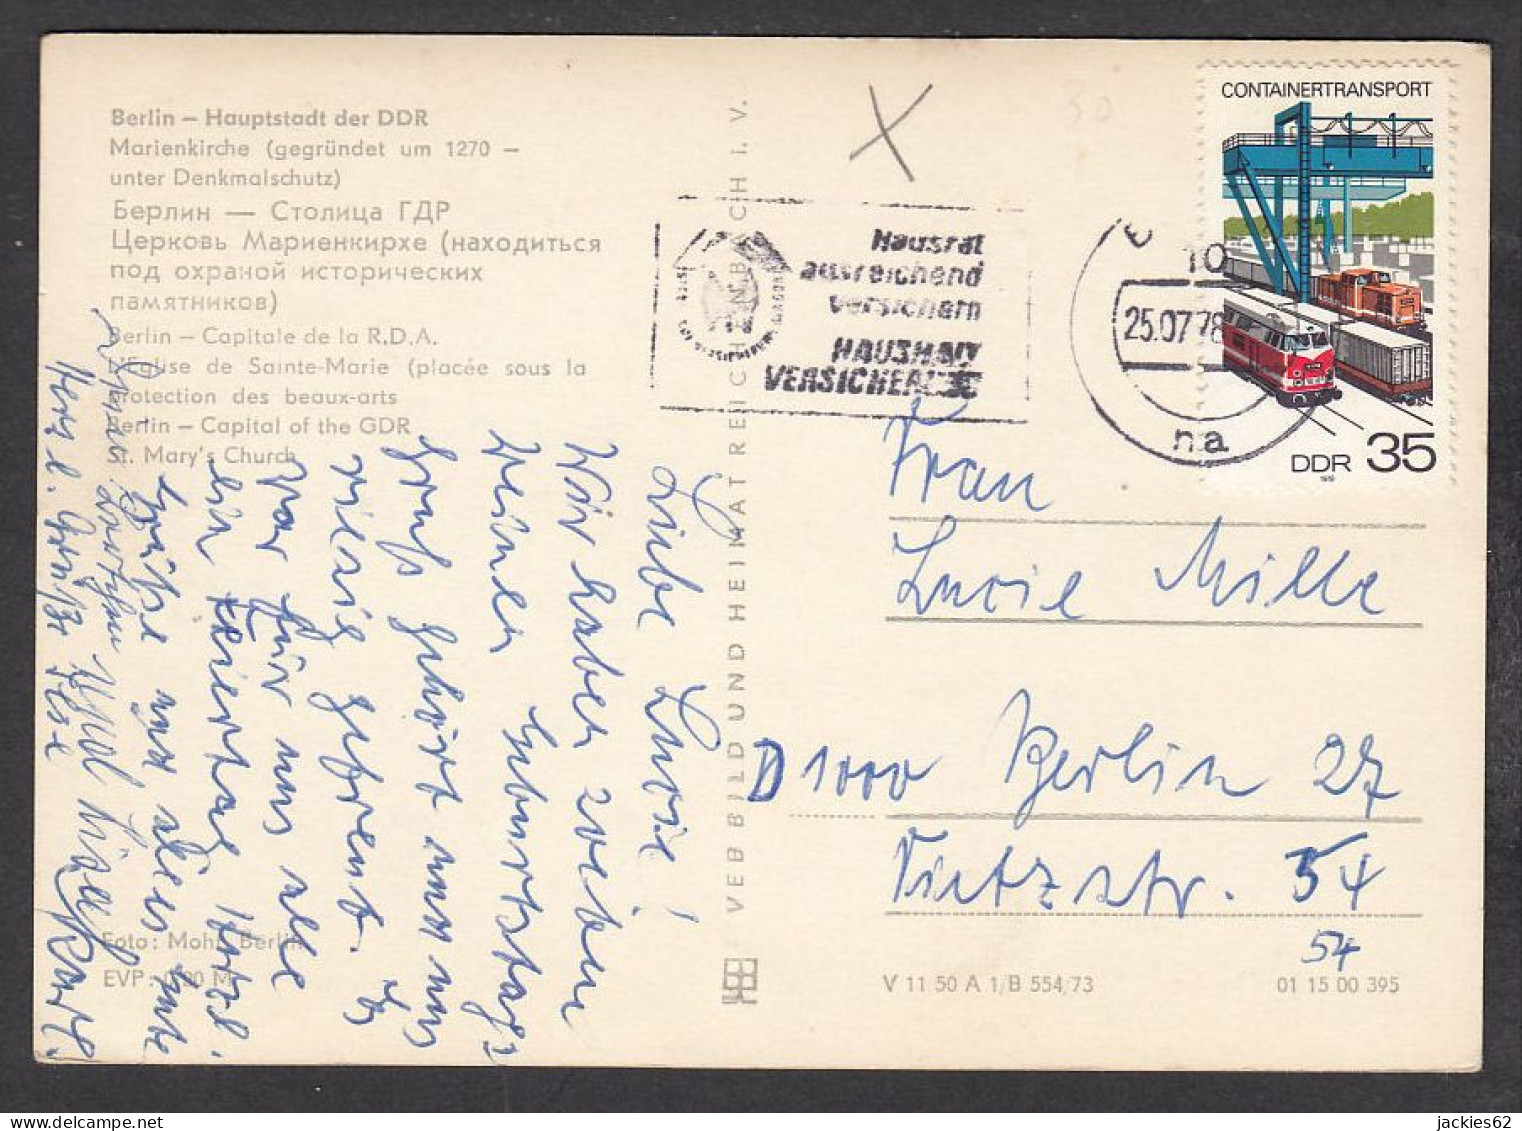 Berlin – Hauptstadt der DDR
Marienkirche (gegründet um 1270 –
unter Denkmalschutz)
Берлин — Столица ГДР
Церковь Мариенкирхе (находиться
под охраной исторических
памятников)
Berlin – Capitale de la R.D.A.
L'Eglise de Sainte-Marie (placée sous la
protection des beaux-arts
Berlin – Capital of the GDR
St. Mary's Church
Foto: Mohr, Berlin
EVP: 0,20 M
Liebe Lucie!
Wir haben soeben
Deinen Geburtstags
gruß gehört und uns
riesig gefreut. Es
war für uns alle
ein Feiertag
Grüße und alles Gute
Kurt.
Herzl. Grüße
VEB BILD UND HEIMAT REICHENBACH I. V.
30
Hausrat
ausreichend
versichern
HAUSHALT
VERSICHERUNG
10
25.07.78
na
CONTAINERTRANSPORT
DDR 35
Frau
Lucie Mille
D 1000 Berlin 27
Vietzstr. 54
54
V 11 50 A 1/B 554/73
01 15 00 395
jackies62